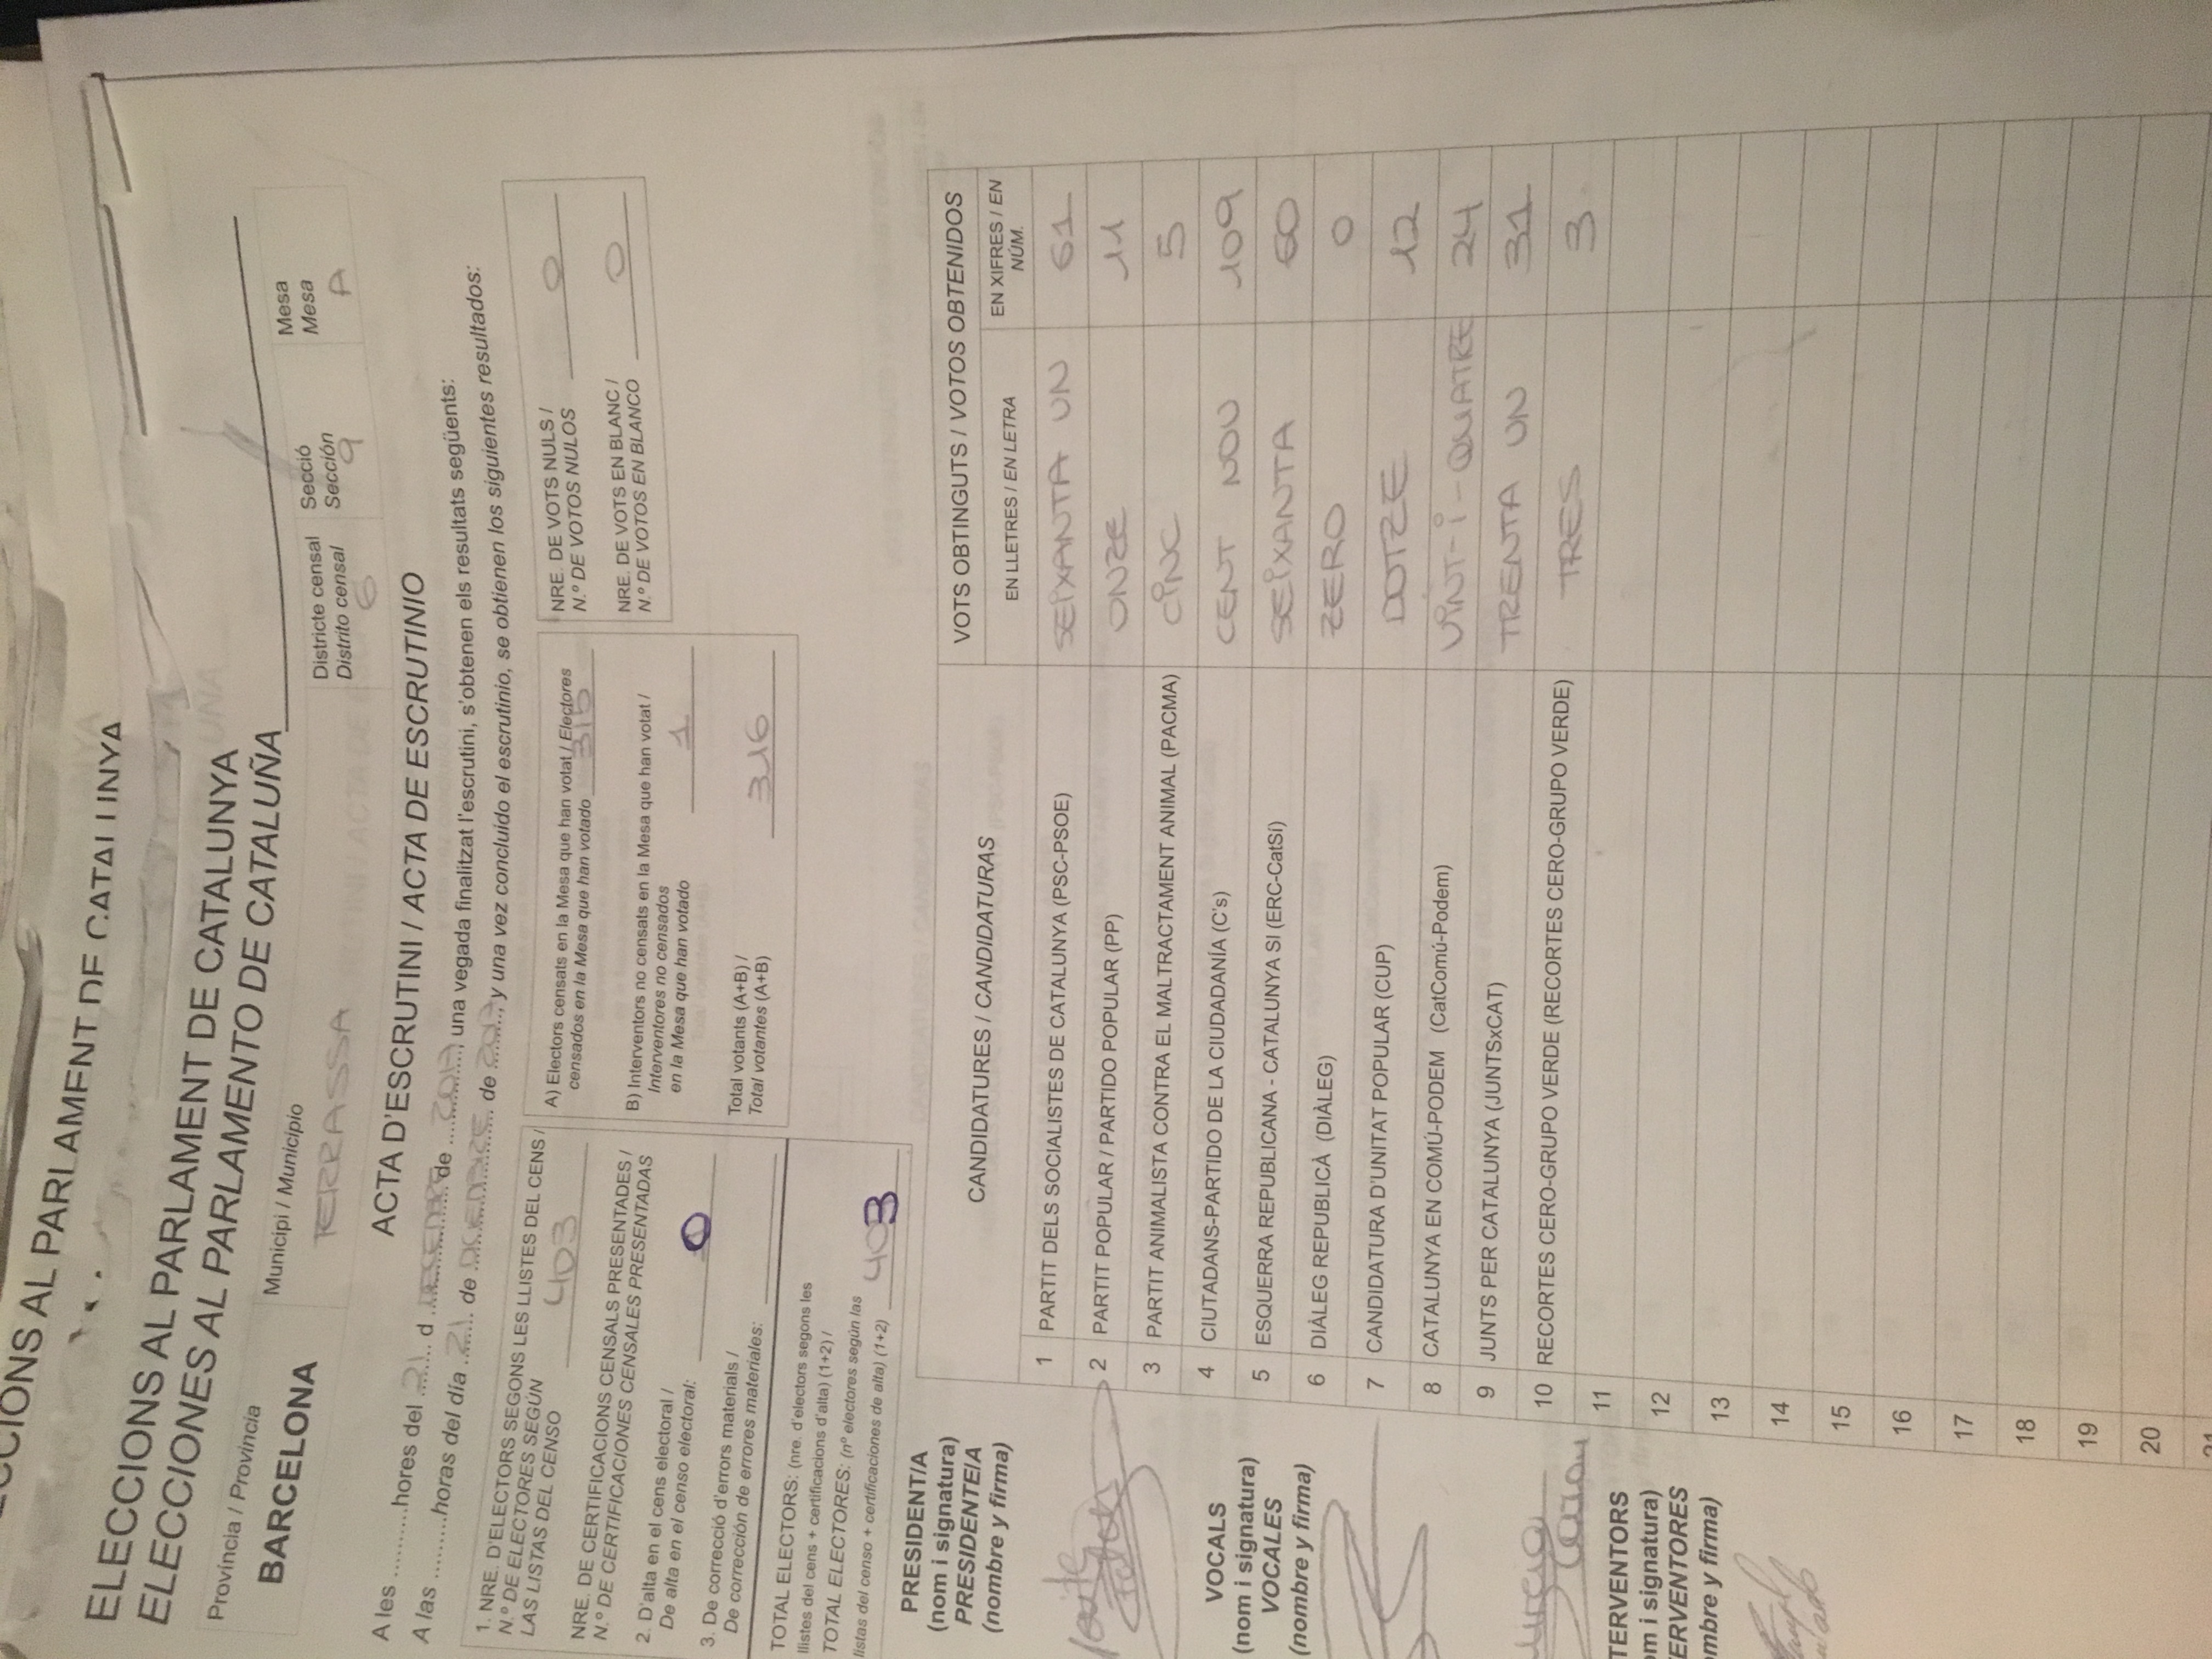 ECCIONS AL PARLAMENT DE CATALUNYA
ELECCIONS AL PARLAMENT DE CATALUNYA
ELECCIONES AL PARLAMENTO DE CATALUÑA
Província / Provincia
BARCELONA
Municipi / Municipio
TERRASSA
Districte censal
Distrito censal
6
Secció
Sección
9
Mesa
Mesa
A
ACTA D'ESCRUTINI / ACTA DE ESCRUTINIO
A les ..........hores del 21 d DECEMBRE de 2017, una vegada finalitzat l'escrutini, s'obtenen els resultats següents:
A las .........horas del día 21 de DICIEMBRE de 2017, y una vez concluido el escrutinio, se obtienen los siguientes resultados:
1. NRE. D'ELECTORS SEGONS LES LLISTES DEL CENS /
N.º DE ELECTORES SEGÚN
LAS LISTAS DEL CENSO 403
NRE. DE CERTIFICACIONS CENSALS PRESENTADES /
N.º DE CERTIFICACIONES CENSALES PRESENTADAS
2. D'alta en el cens electoral /
De alta en el censo electoral: 0
3. De correcció d'errors materials /
De corrección de errores materiales:
TOTAL ELECTORS: (nre. d'electors segons les
llistes del cens + certificacions d'alta) (1+2) /
TOTAL ELECTORES: (nº electores según las
listas del censo + certificaciones de alta) (1+2) 403
A) Electors censats en la Mesa que han votat / Electores
censados en la Mesa que han votado 315
B) Interventors no censats en la Mesa que han votat /
Interventores no censados
en la Mesa que han votado 1
Total votants (A+B) /
Total votantes (A+B) 316
NRE. DE VOTS NULS /
N.º DE VOTOS NULOS 0
NRE. DE VOTS EN BLANC /
N.º DE VOTOS EN BLANCO 0
PRESIDENT/A
(nom i signatura)
PRESIDENTE/A
(nombre y firma)
VOCALS
(nom i signatura)
VOCALES
(nombre y firma)
TERVENTORS
om i signatura)
ERVENTORES
ombre y firma)
CANDIDATURES / CANDIDATURAS
VOTS OBTINGUTS / VOTOS OBTENIDOS
EN LLETRES / EN LETRA
EN XIFRES / EN
NÚM.
1 PARTIT DELS SOCIALISTES DE CATALUNYA (PSC-PSOE) SEIXANTA UN 61
2 PARTIT POPULAR / PARTIDO POPULAR (PP) ONZE 11
3 PARTIT ANIMALISTA CONTRA EL MALTRACTAMENT ANIMAL (PACMA) CINC 5
4 CIUTADANS-PARTIDO DE LA CIUDADANÍA (C's) CENT NOU 109
5 ESQUERRA REPUBLICANA - CATALUNYA SI (ERC-CatSí) SEIXANTA 60
6 DIÀLEG REPUBLICÀ (DIÀLEG) ZERO 0
7 CANDIDATURA D'UNITAT POPULAR (CUP) DOTZE 12
8 CATALUNYA EN COMÚ-PODEM (CatComú-Podem) VINT-I-QUATRE 24
9 JUNTS PER CATALUNYA (JUNTSxCAT) TRENTA UN 31
10 RECORTES CERO-GRUPO VERDE (RECORTES CERO-GRUPO VERDE) TRES 3
11
12
13
14
15
16
17
18
19
20
21